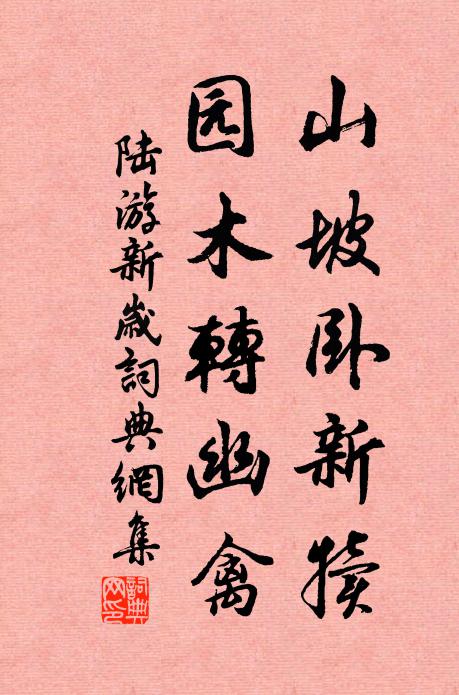 山坡卧新犊
园木轉幽禽
陆游新歲詞典網集
詞典網印